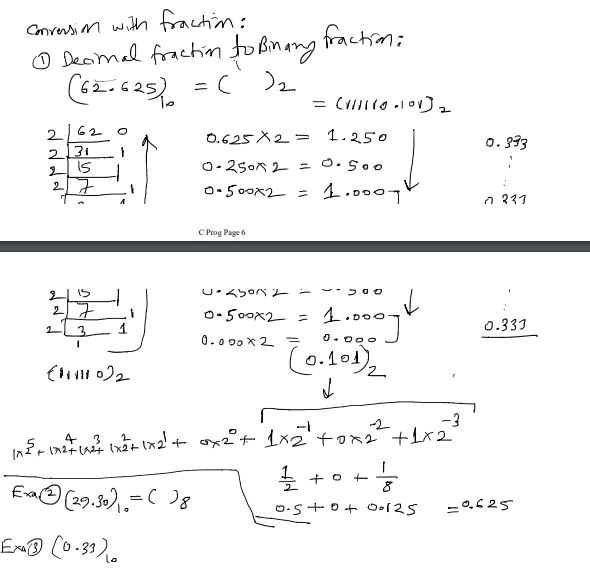 Conversion with fraction:
① Decimal fraction to Binary fraction:
(62.625)10 = ( )2
= (111110.101)2
2 | 62 0
2 | 31 1
2 | 15 1
2 | 7 1
0.625 X 2 = 1.250
0.250 X 2 = 0.500
0.500 X 2 = 1.000
0.333
:
0.333
C Prog Page 6
2 | 15 1
2 | 7 1
2 | 3 1
1
(111110)2
0.250 X 2 = 0.500
0.500 X 2 = 1.000
0.000 X 2 = 0.000
(0.101)2
:
0.333
1x2^5 + 1x2^4 + 1x2^3 + 1x2^2 + 1x2^1 + 0x2^0 + 1x2^-1 + 0x2^-2 + 1x2^-3
1/2 + 0 + 1/8
0.5 + 0 + 0.125 = 0.625
Exa② (29.30)10 = ( )8
Exa③ (0.33)10